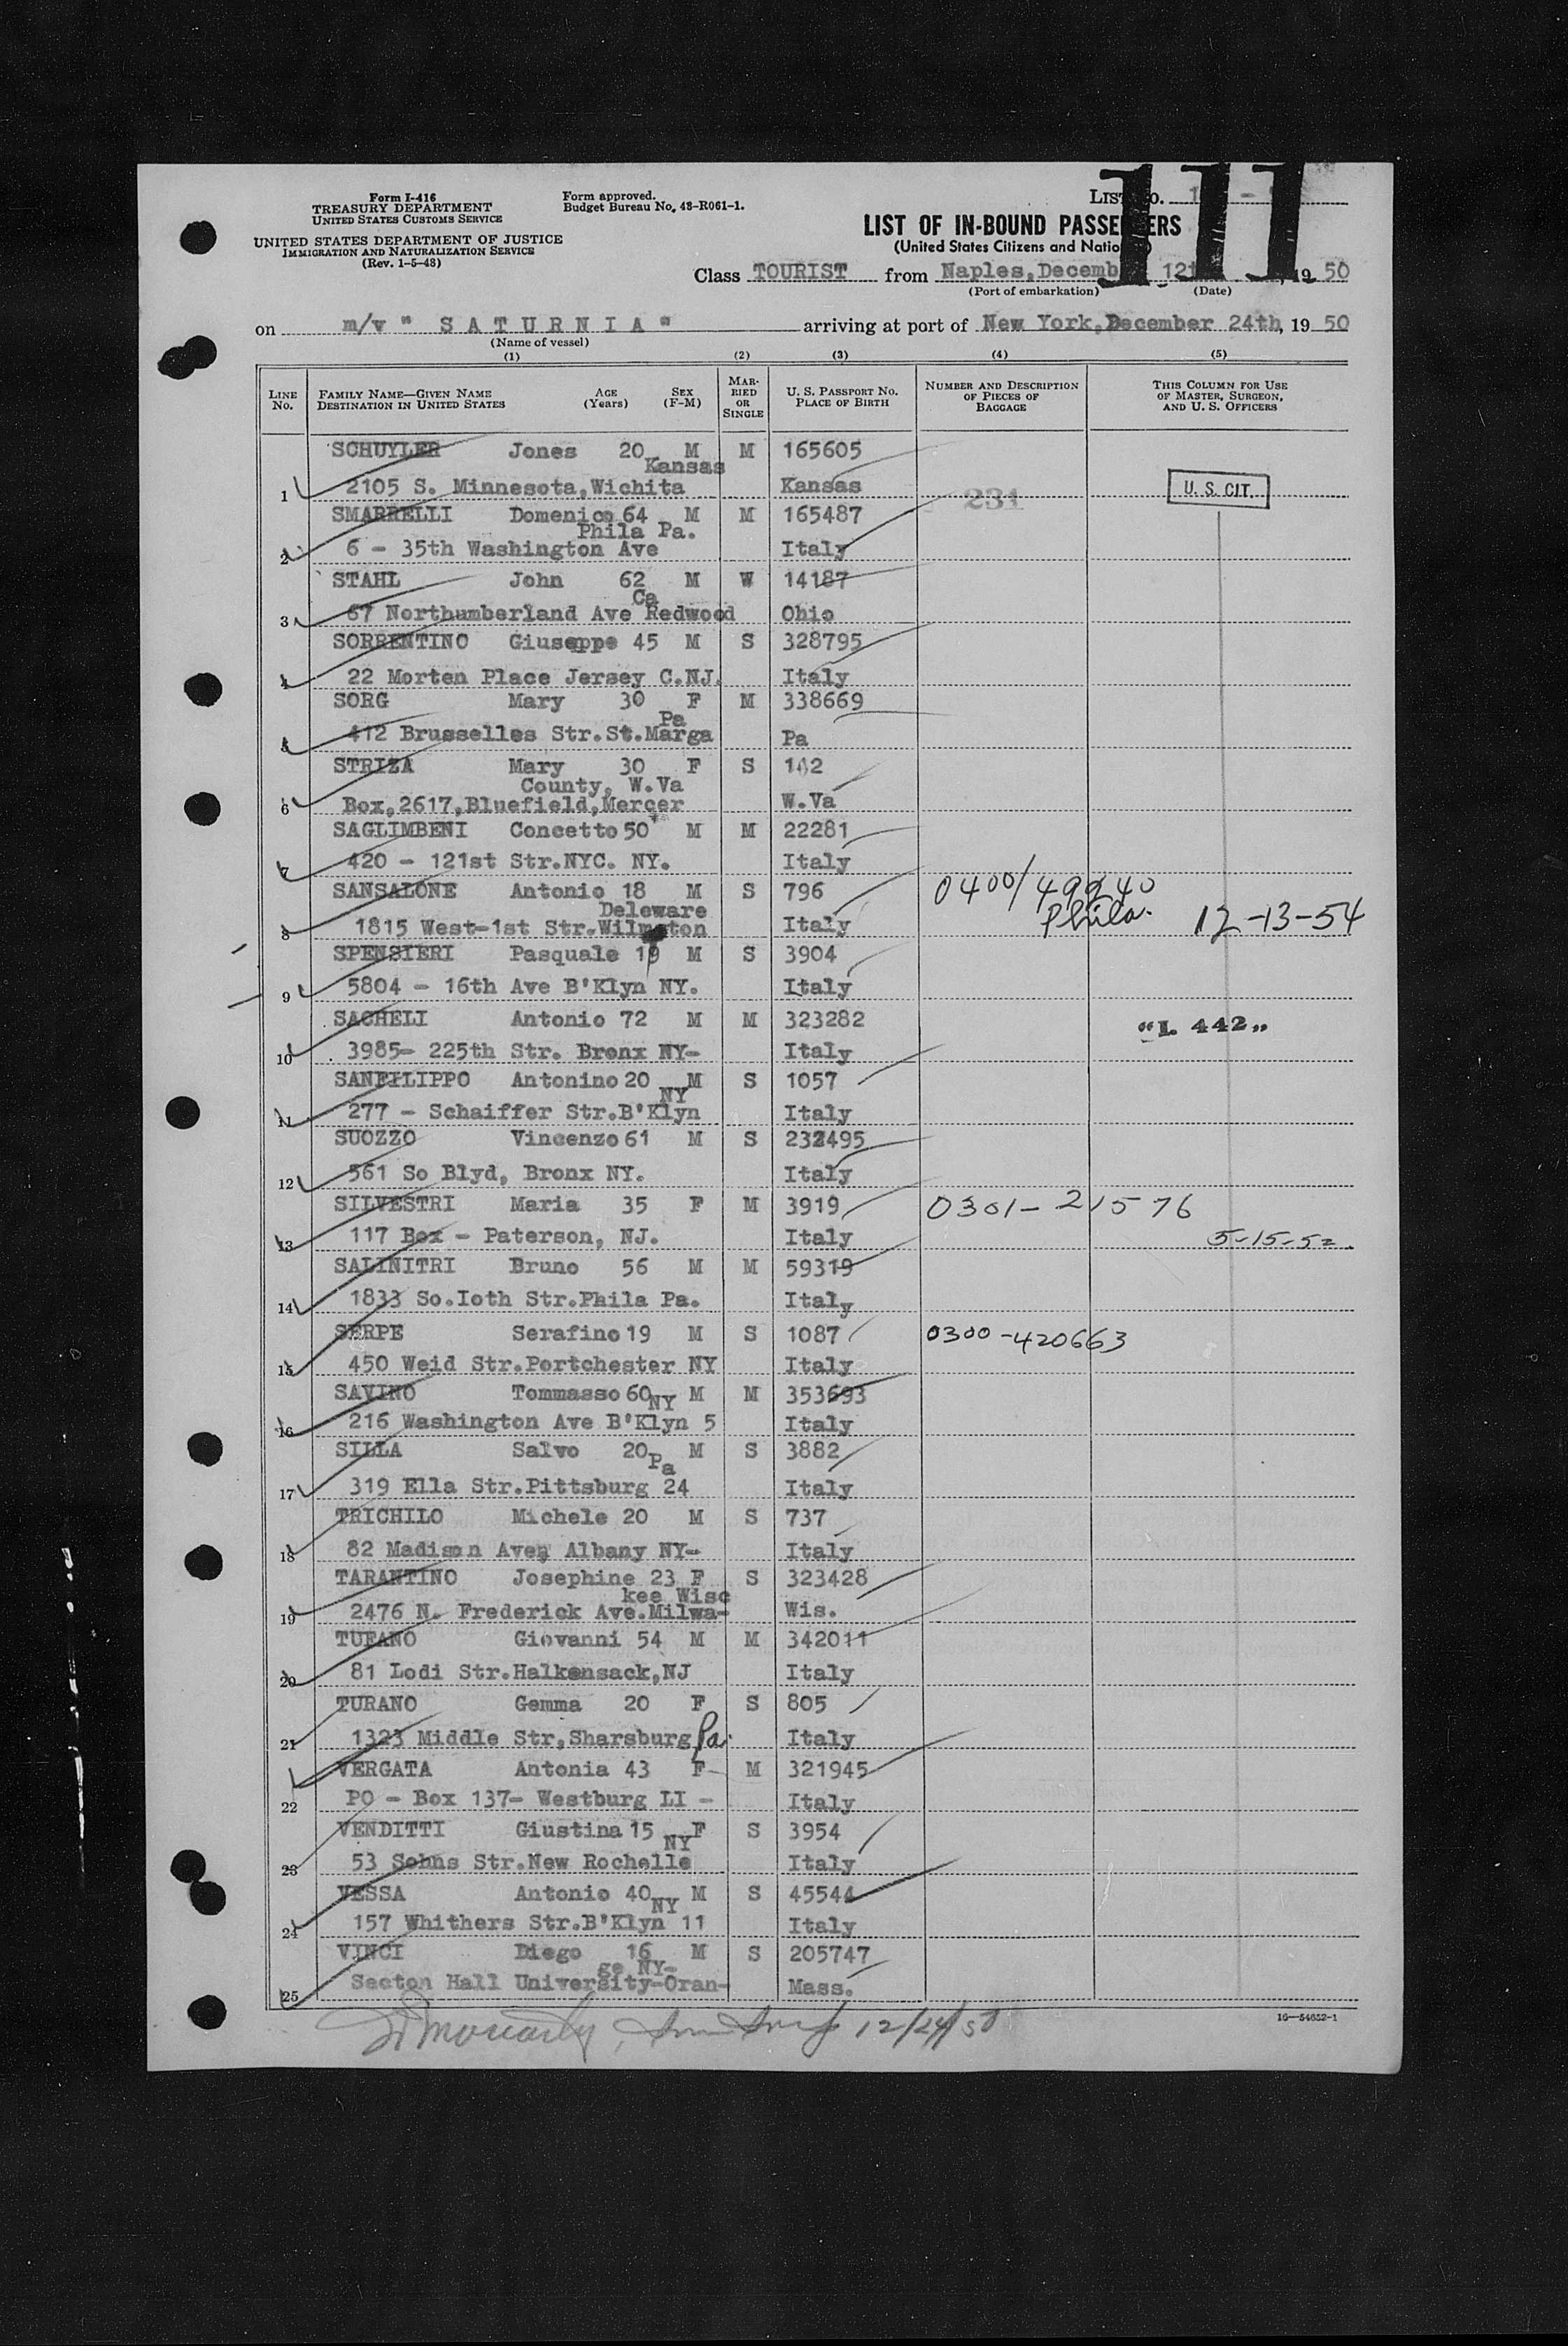 Form I-416
TREASURY DEPARTMENT
UNITED STATES CUSTOMS SERVICE
UNITED STATES DEPARTMENT OF JUSTICE
IMMIGRATION AND NATURALIZATION SERVICE
(Rev. 1-5-48)
Form approved.
Budget Bureau No. 43-R061-1.
LIST NO.
111
LIST OF IN-BOUND PASSENGERS
(United States Citizens and Nationals)
Class TOURIST from Naples, December 12th, 19 50
(Port of embarkation) (Date)
on m/v " S A T U R N I A " arriving at port of New York, December 24th, 19 50
(Name of vessel)
(1) (2) (3) (4) (5)
LINE No. FAMILY NAME—GIVEN NAME DESTINATION IN UNITED STATES AGE (Years) SEX (F-M) MARRIED OR SINGLE U. S. PASSPORT NO. PLACE OF BIRTH NUMBER AND DESCRIPTION OF PIECES OF BAGGAGE THIS COLUMN FOR USE OF MASTER, SURGEON, AND U. S. OFFICERS
SCHUYLER Jones 20 M M 165605
Kansas
1 2105 S. Minnesota, Wichita Kansas 231 U. S. CIT.
SMARRELLI Domenico 64 M M 165487
Phila Pa.
2 6 - 35th Washington Ave Italy
STAHL John 62 M W 14187
Ca
3 67 Northumberland Ave Redwood Ohio
SORRENTINO Giuseppe 45 M S 328795
4 22 Morten Place Jersey C.NJ. Italy
SORG Mary 30 F M 338669
Pa
5 412 Brusselles Str.St.Marga Pa
STRIZA Mary 30 F S 142
County, W.Va
6 Box,2617,Bluefield,Mercer W.Va
SAGLIMBENI Concetto 50 M M 22281
7 420 - 121st Str.NYC. NY. Italy
SANSALONE Antonio 18 M S 796 0400/49940
Deleware
8 1815 West-1st Str.Wilmgton Italy Phila. 12-13-54
SPENSIERI Pasquale 19 M S 3904
9 5804 - 16th Ave B'Klyn NY. Italy
SACHELI Antonio 72 M M 323282 "I. 442"
10 3985- 225th Str. Bronx NY- Italy
SANFILIPPO Antonino 20 M S 1057
NY
11 277 - Schaiffer Str.B'Klyn Italy
SUOZZO Vincenzo 61 M S 232495
12 561 So Blyd, Bronx NY. Italy
SILVESTRI Maria 35 F M 3919 0301-21576
13 117 Box - Paterson, NJ. Italy 5-15-52.
SALINITRI Bruno 56 M M 59319
14 1833 So.Ioth Str.Phila Pa. Italy
SERPE Serafino 19 M S 1087 0300-420663
15 450 Weid Str.Portchester NY Italy
SAVINO Tommasso 60 M M 353693
NY
16 216 Washington Ave B'Klyn 5 Italy
SILLA Salvo 20 M S 3882
Pa
17 319 Ella Str.Pittsburg 24 Italy
TRICHILO Michele 20 M S 737
18 82 Madison Ave, Albany NY- Italy
TARANTINO Josephine 23 F S 323428
kee Wisc
19 2476 N. Frederick Ave.Milwa- Wis.
TUFANO Giovanni 54 M M 342011
20 81 Lodi Str.Halkensack,NJ Italy
TURANO Gemma 20 F S 805
21 1323 Middle Str,Sharsburg Pa. Italy
VERGATA Antonia 43 F M 321945
22 PO - Box 137- Westburg LI - Italy
VENDITTI Giustina 15 F S 3954
NY
23 53 Sohns Str.New Rochelle Italy
VESSA Antonio 40 M S 45544
NY
24 157 Whithers Str.B'Klyn 11 Italy
VINCI Diego 16 M S 205747
ge NY-
25 Secton Hall University-Oran- Mass.
12/24/50
16—54652-1